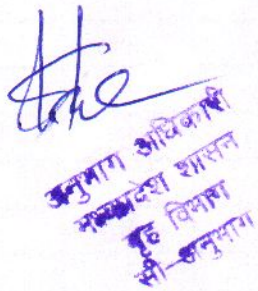 अनुभाग अधिकारी
मध्यप्रदेश शासन
गृह विभाग
सी-अनुभाग